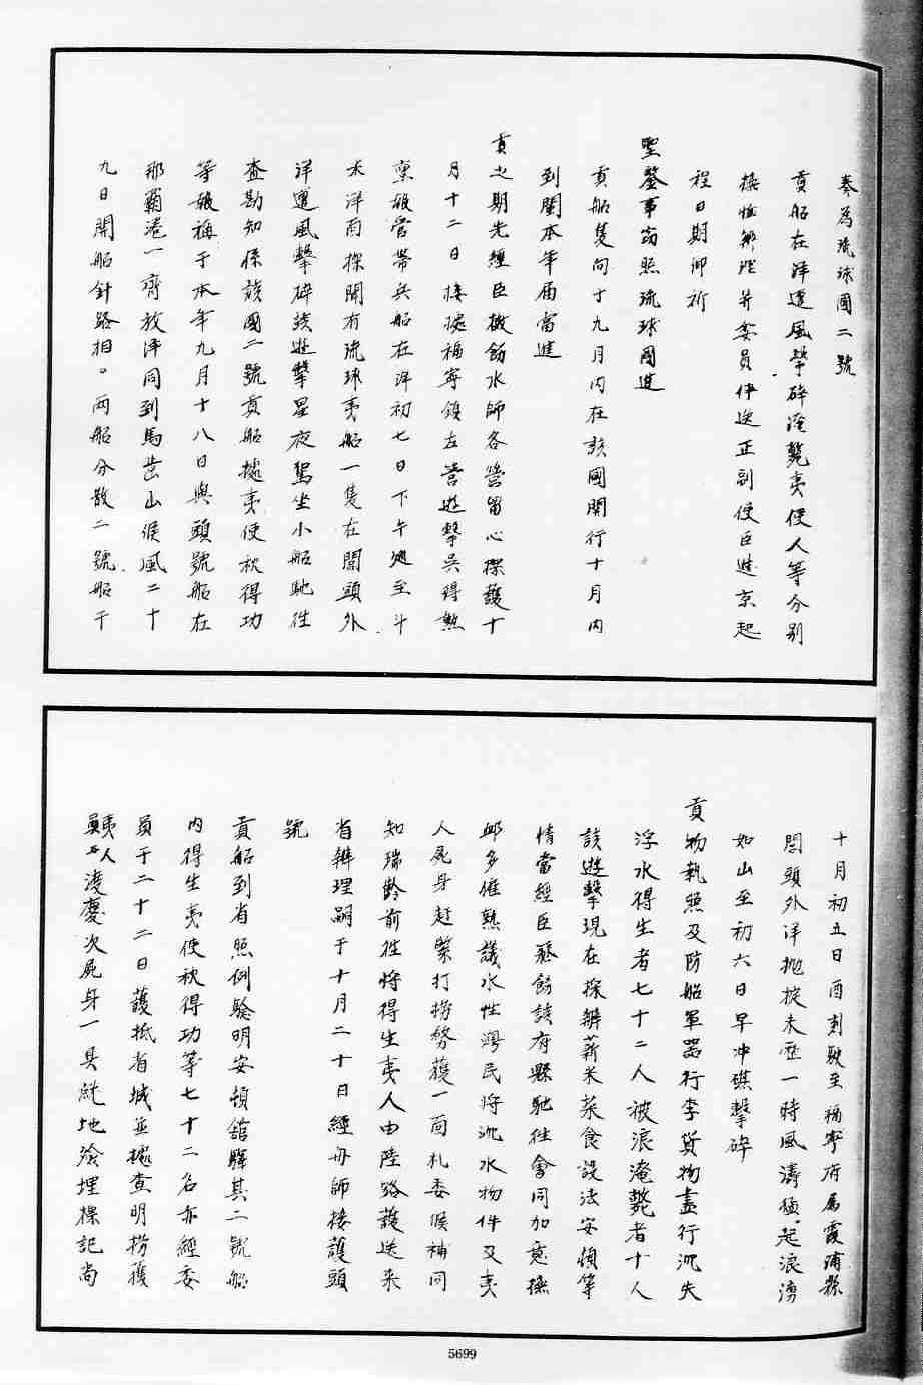 奏為琉球國二號
貢船在洋遭風擊碎淹斃夷使人等分別
撫恤辦理并委員伴送正副使臣進京起
程日期仰祈
聖鑒事竊照琉球國進
貢船隻向于九月內在該國開行十月內
到閩本年屆當進
貢之期先經臣檄飭水師各營留心探護十
月十二日接據福寧鎮左營遊擊吳得勲
稟報管帶兵船在洋初七日下午進至斗
米洋面探聞有琉球夷船一隻在閭頭外
洋遭風擊碎該遊擊星夜駕坐小船馳往
查勘知係該國二號貢船據夷使秋得功
等報稱于本年九月十八日與頭號船在
那霸港一齊放洋同到馬齿山候風二十
九日開船針路相。兩船分散二號船于
十月初五日酉刻駛至福寧府属霞浦縣
閭頭外洋抛掟未歴一時風濤猛起浪湧
如山至初六日早冲礁擊碎
貢物執照及防船軍器行李貨物盡行沉失
浮水得生者七十二人被浪淹斃者十人
該遊擊現在探辦薪米菜食設法安頓等
情當經臣飛飭該府縣馳往會同加意撫
卹多僱熟議水性灣民將沉水物件及夷
人屍身赶緊打撈務獲一面札委候補同
知瑞齡前往將得生夷人由陸路護送来
省辦理嗣于十月二十日經舟師接護頭
號
貢船到省照例驗明安頓舘驛其二號船
内得生夷使秋得功等七十二名亦經委
員于二十二日護抵省城並據查明撈獲
夷人渡慶次屍身一具就地淦埋標記尚
5699